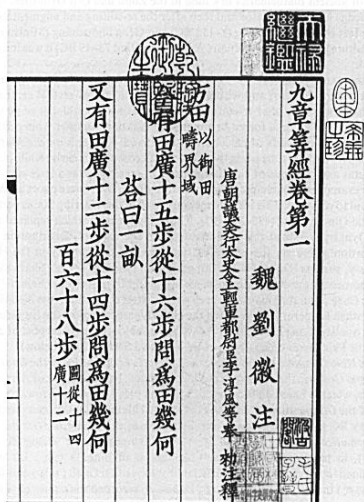 天祿繼鑑
宋本
希世之珍
乾隆御覽之寶
九章筭經卷第一
魏 劉徽 注
唐朝議大夫行太史令上輕車都尉臣李淳風等奉 勑注釋
方田以御田疇界域
有田廣十五步從十六步問爲田幾何
荅曰一畝
又有田廣十二步從十四步問爲田幾何
百六十八步圖從十四廣十二